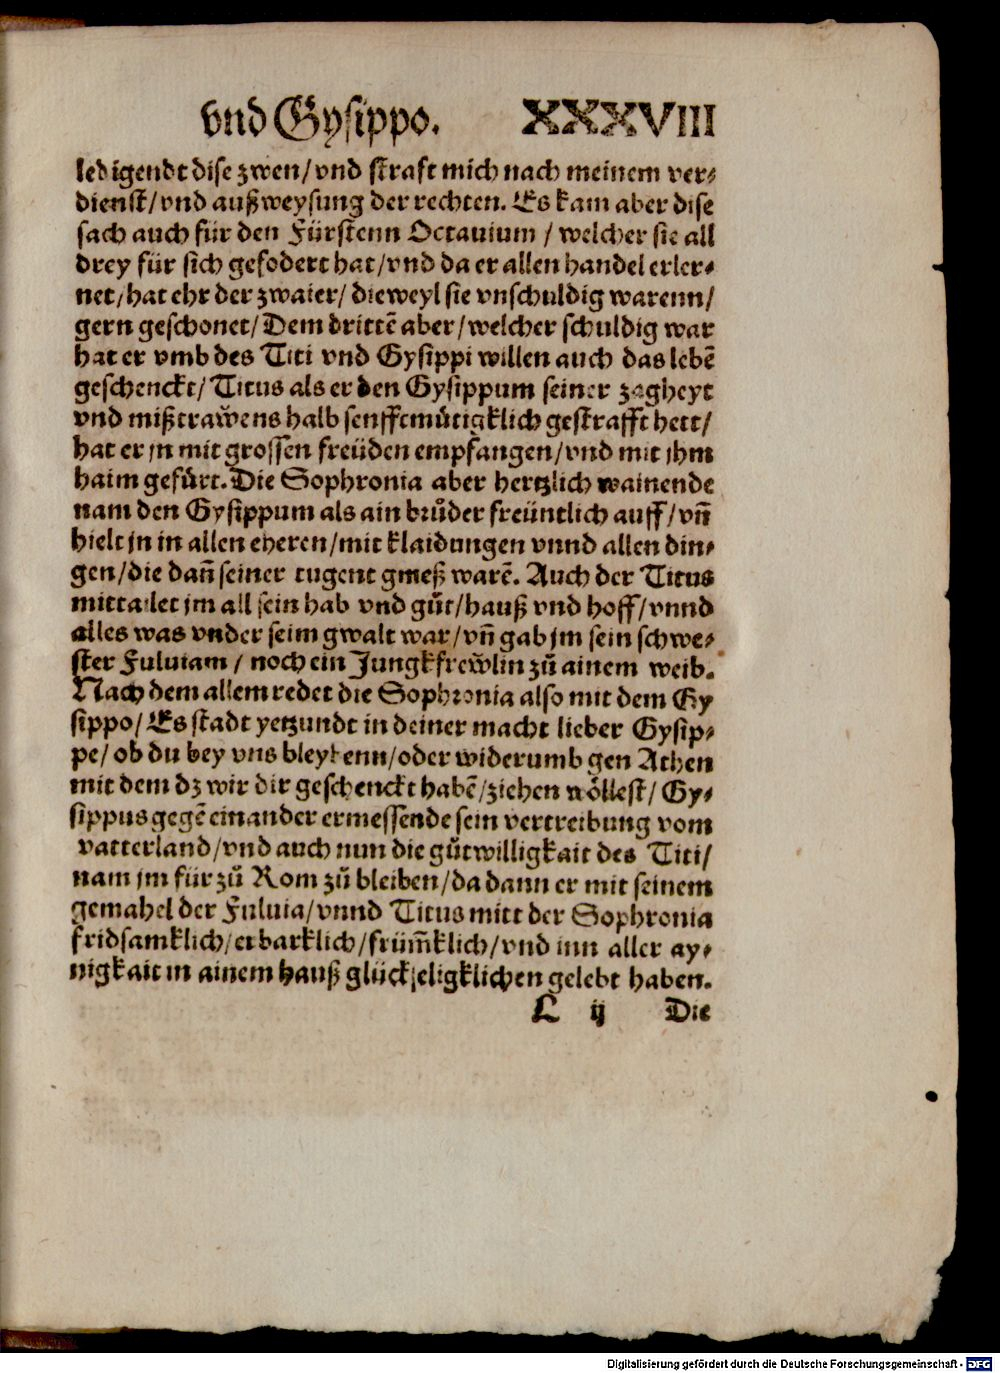 vnd Gysippo. XXXVIII
ledigendt dise zwen/vnd straft mich nach meinem ver⸗
dienst/vnd außweysung der rechten. Es kam aber dise
sach auch für den Fürstenn Octauium / welcher sie all
drey für sich gefodert hat/vnd da er allen handel erler⸗
net/hat ehr der zwaier/dieweyl sie vnschuldig warenn/
gern geschonet/Dem drittē aber/welcher schuldig war
hat er vmb des Titi vnd Gysippi willen auch das lebē
geschenckt/Titus als er den Gysippum seiner zagheyt
vnd mißtraẅens halb senfftmuͤtigklich gestrafft hett/
hat er jn mit grossen freüden empfangen/vnd mit jhm
haim gefuͤrt. Die Sophronia aber hertzlich wainende
nam den Gysippum als ain bruͦder freüntlich auff/vñ
hielt jn in allen eheren/mit klaidungen vnnd allen din⸗
gen/die dañ seiner tugent gmeß warē. Auch der Titus
mittailet jm all sein hab vnd guͦt/hauß vnd hoff/vnnd
alles was vnder seim gwalt war/vñ gab jm sein schwe⸗
ster Fuluiam / noch ein Jungkfreẅlin zuͦ ainem weib.
Nach dem allem redet die Sophronia also mit dem Gy
sippo/Es stadt yetzundt in deiner macht lieber Gysip⸗
pe/ob du bey vns bleybenn/oder widerumb gen Athen
mit dem dz wir dir geschenckt habē/ziehen woͤllest/Gy⸗
sippus gegē einander ermessende sein vertreibung vom
vatterland/vnd auch nun die guͦtwilligkait des Titi/
nam jm für zuͦ Rom zuͦ bleiben/da dann er mit seinem
gemahel der Fuluia/vnnd Titus mitt der Sophronia
fridsamklich/erbarklich/früm̃klich/vnd inn aller ay⸗
nigkait in ainem hauß glückseligklichen gelebt haben.
L ij Die
Digitalisierung gefördert durch die Deutsche Forschungsgemeinschaft - DFG